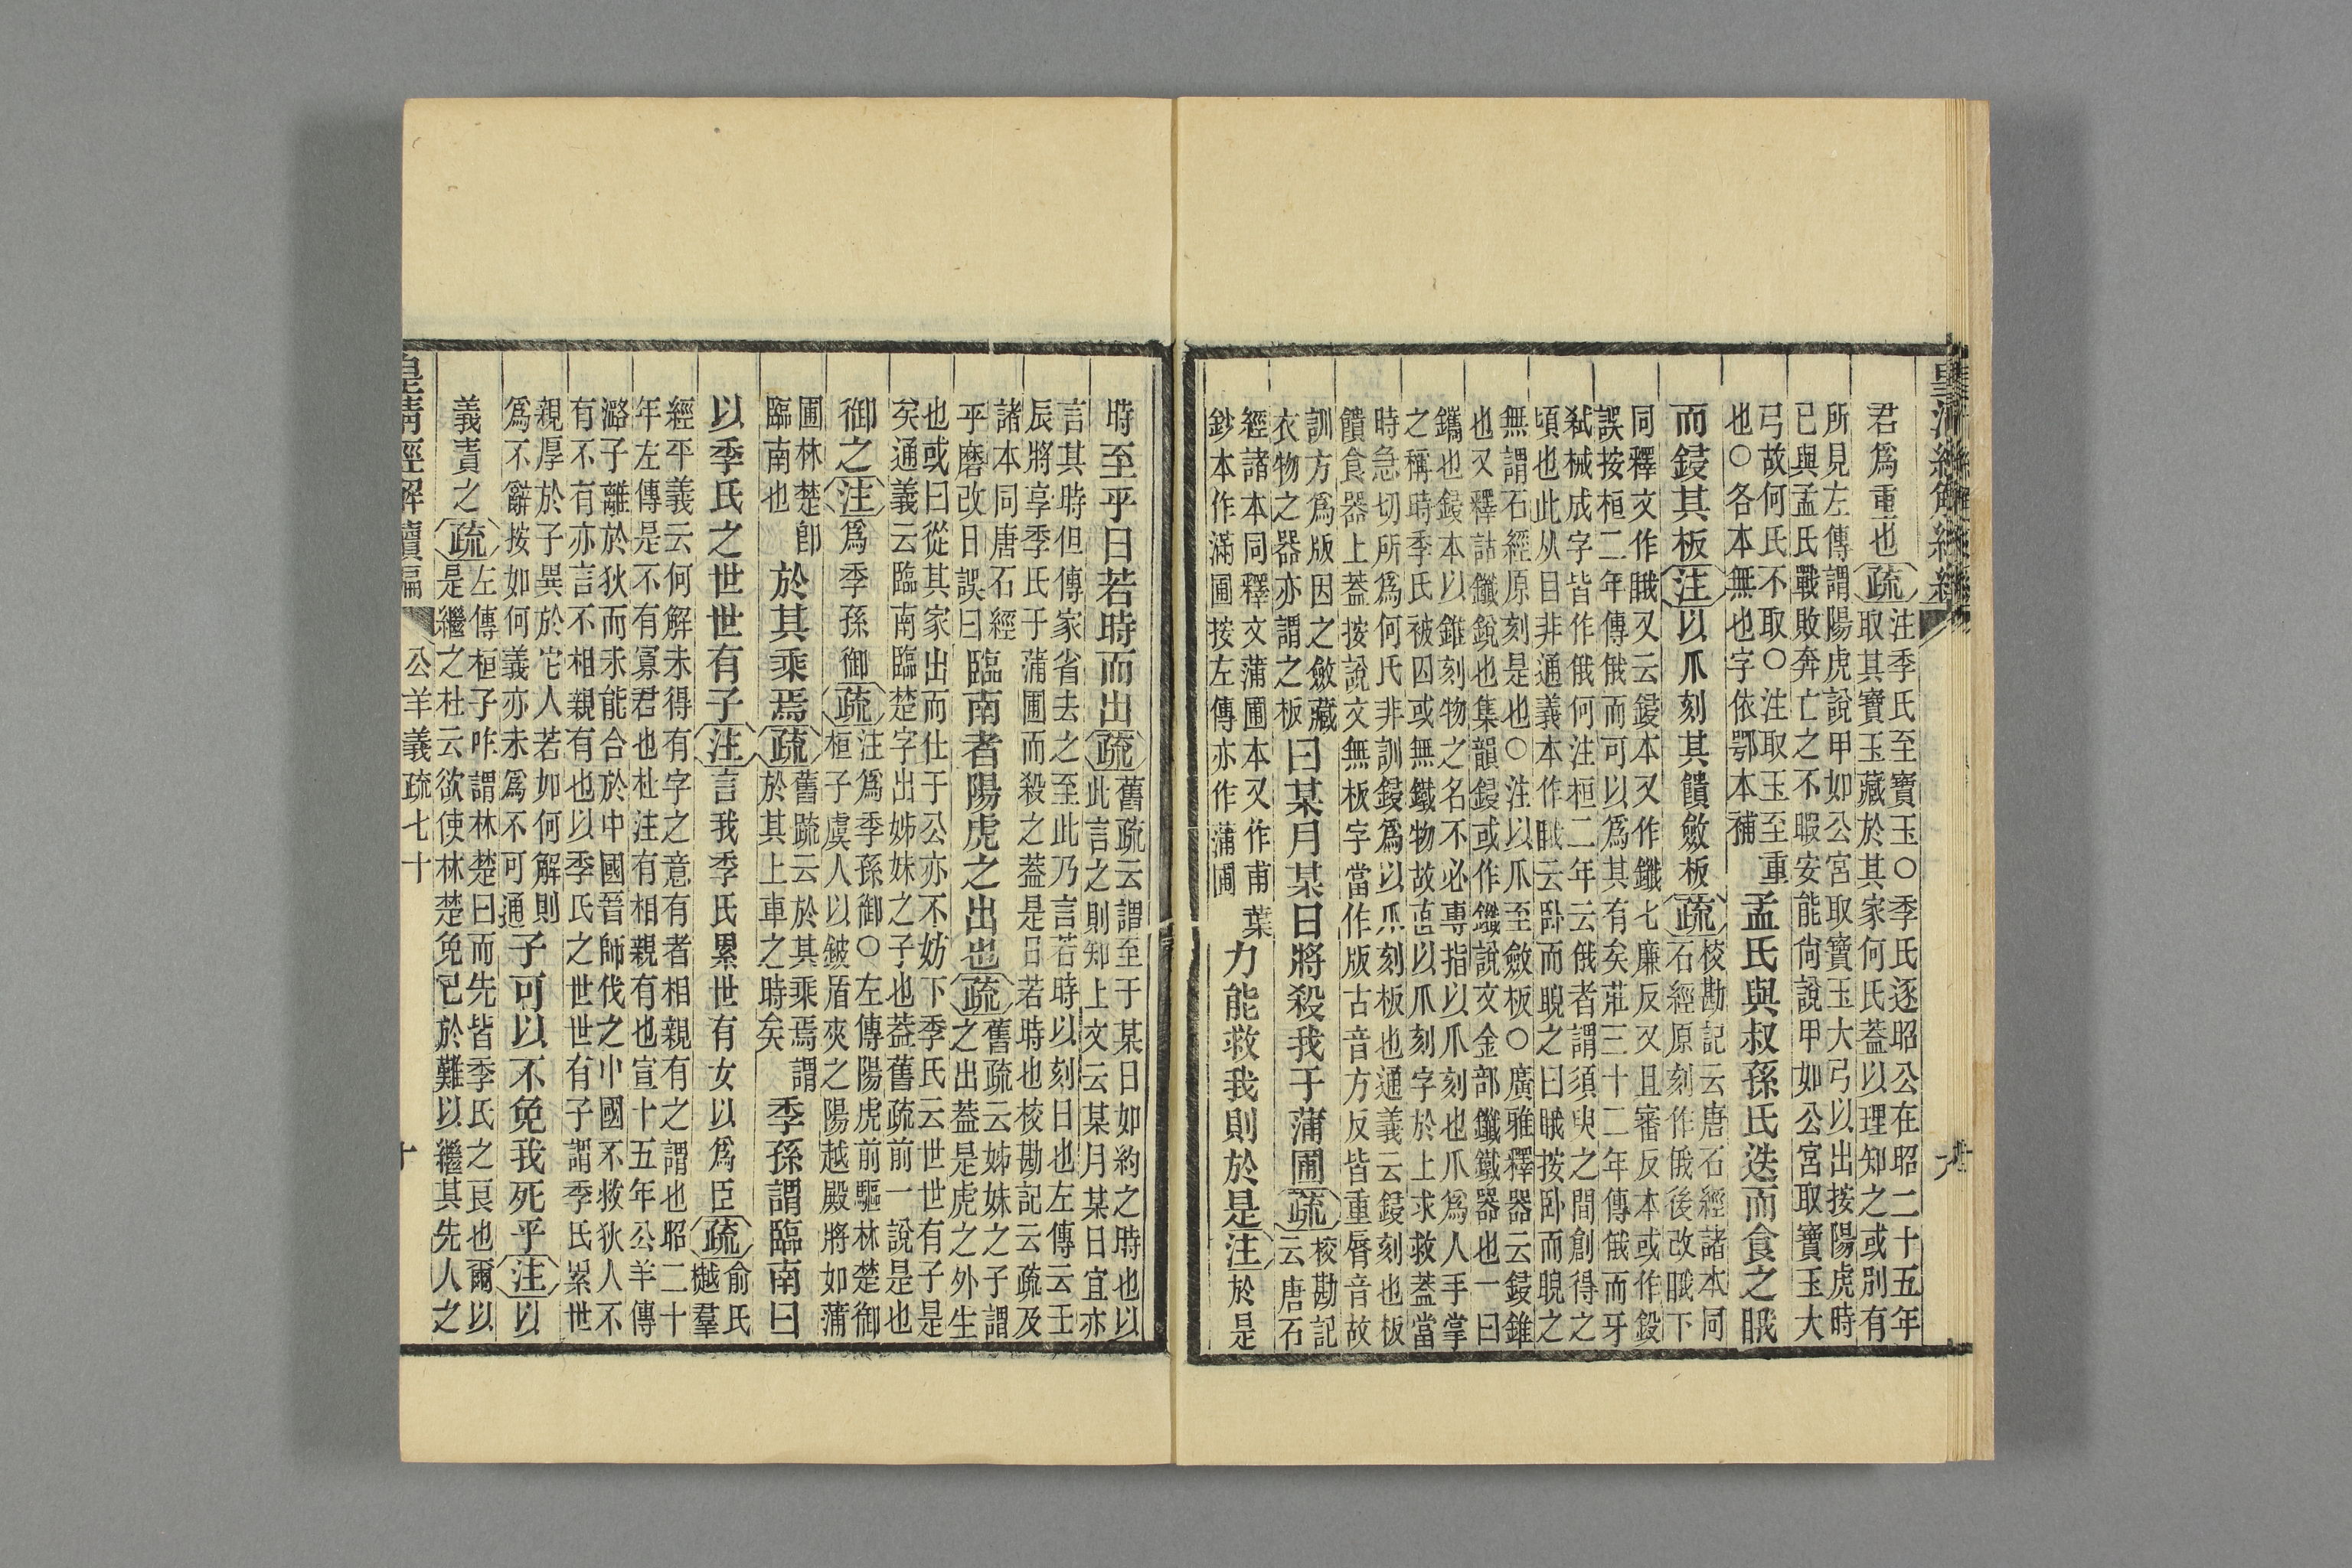 君爲重也疏注季氏至寶玉○季氏逐昭公在昭二十五年
取其寶玉藏於其家何氏蓋以理知之或別有
所見左傳謂陽虎說甲如公宮取寶玉大弓以出按陽虎時
已與孟氏戰敗奔亡之不暇安能尙說甲如公宮取寶玉大
弓故何氏不取○注取玉至重
也○各本無也字依鄂本補
孟氏與叔孫氏迭而食之睋
而鋟其板注以爪刻其饋斂板疏校勘記云唐石經諸本同
石經原刻作俄後改睋下
同釋文作睋又云鋟本又作鑯七廉反又且審反本或作鋟
誤按桓二年傳俄而可以爲其有矣莊三十二年傳俄而牙
弒械成字皆作俄何注桓二年云俄者謂須臾之間創得之
頃也此从目非通義本作睋云卧而睨之曰睋按卧而睨之
無謂石經原刻是也○注以爪至斂板○廣雅釋器云鋟錐
也又釋詁鑯銳也集韻鋟或作鑯說文金部鑯鐵器也一曰
鐫也鋟本以錐刻物之名不必專指以爪刻也爪爲人手掌
之稱時季氏被囚或無鐵物故葢以爪刻字於上求救蓋當
時急切所爲何氏非訓鋟爲以爪刻板也通義云鋟刻也板
饋食器上蓋按說文無板字當作版古音方反皆重脣音故
訓方爲版因之斂藏
衣物之器亦謂之板
曰某月某日將殺我于蒲圃疏校勘記
云唐石
經諸本同釋文蒲圃本又作甫 葉
鈔本作滿圃按左傳亦作蒲圃
力能救我則於是注於是
時至乎日若時而出疏舊疏云謂至于某日如約之時也以
此言之則知上文云某月某日宜亦
言其時但傳家省去之至此乃言若時以刻日也左傳云壬
辰將享季氏于蒲圃而殺之蓋是日若時也校勘記云疏及
諸本同唐石經
乎磨改日誤曰
臨南者陽虎之出也疏舊疏云姊妹之子謂
之出蓋是虎之外生
也或曰從其家出而仕于公亦不妨下季氏云世世有子是
矣通義云臨南臨楚字出姊妹之子也蓋舊疏前一說是也
御之注爲季孫御疏注爲季孫御○左傳陽虎前驅林楚御
桓子虞人以鈹盾夾之陽越殿將如蒲
圃林楚卽
臨南也
於其乘焉疏舊疏云於其乘焉謂
於其上車之時矣
季孫謂臨南曰
以季氏之世世有子注言我季氏累世有女以爲臣疏俞氏
樾羣
經平義云何解未得有字之意有者相親有之謂也昭二十
年左傳是不有寡君也杜注有相親有也宣十五年公羊傳
潞子離於狄而未能合於中國晉師伐之中國不救狄人不
有不有亦言不相親有也以季氏之世世有子謂季氏累世
親厚於子異於它人若如何解則
爲不辭按如何義亦未爲不可通
子可以不免我死乎注以
義責之疏左傳桓子咋謂林楚曰而先皆季氏之良也爾以
是繼之杜云欲使林楚免已於難以繼其先人之
皇清經解續編
公羊義疏七十
十